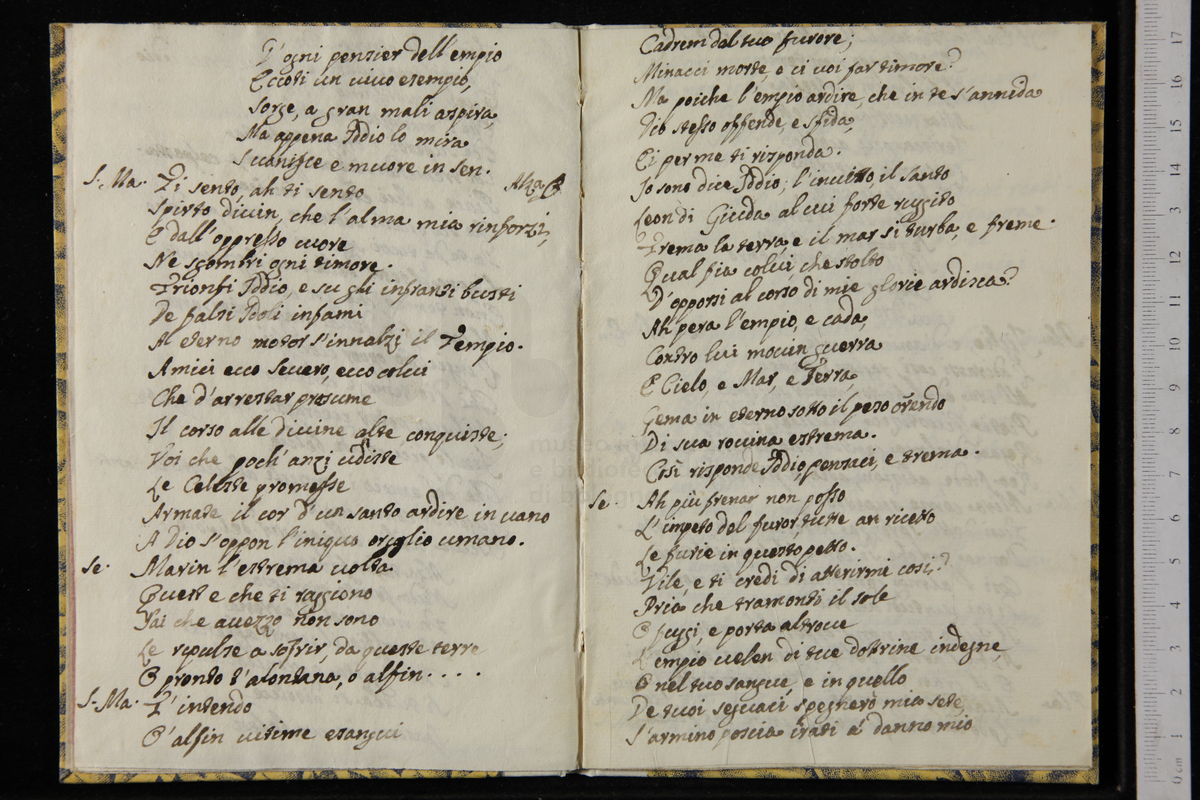 D'ogni pensier dell'empio
Eccoti un vivo esempio,
Sorge, a gran mali aspira,
Ma appena Iddio lo mira
Suanisce e muore in sen.
S. Ma. Ti sento ah ti sento
Spirto divin, che l'alma mia rinforzi,
E dall'oppresso cuore
Ne sgombri ogni timore.
Trionfi Iddio, e su gli infranti busti
De falsi Idoli infami
Al eterno motor s'innalzi il Tempio.
Amici ecco Severo, ecco colui
Che d'arrestar presume
Il corso alle divine alte conquiste;
Voi che poch'anzi udiste
Le Celeste promesse
Armate il cor d'un santo ardire in vano
A Dio s'oppon l'iniquo orgoglio umano.
Se. Marin l'estrema volta
Quest e che ti ragiono
Sai che avezzo non sono
Le repulse a sofrir, da queste terre
O pronto t'alontana, o alfin....
S. Ma. T'intendo
O' alfin vitime esangui
Cadrem dal tuo furore;
Minacci morte, e ci voi far timore?
Ma poiche l'empio ardire, che in te s'annida
Dio stesso offende, e sfida,
Ei per me ti risponda.
Io sono dice Iddio; l'invitto, il santo
Leon di Giuda al cui forte ruggito
Trema la terra, e il mar si turba, e freme.
Qual fia colui, che stolto
D'opporsi al corso di mie glorie ardisca?
Ah pera l'empio, e cada,
Contro lui movin guerra
E Cielo, e Mar, e Terra,
Gema in eterno sotto il peso orendo
Di sua rovina estrema.
Così risponde Iddio, pensaci, e trema.
Se. Ah più frenar non posso
L'impeto del furor tutte an riceto
Le furie in questo petto.
Vile, e ti credi di atterirmi così?
Pria che tramonti il sole
O fuggi, e porta altrove
L'empio velen di tue dotrine indegne,
O nel tuo sangue, e in quello
De tuoi seguaci spegnerò mia sete,
S'armino poscia irati a' danno mio